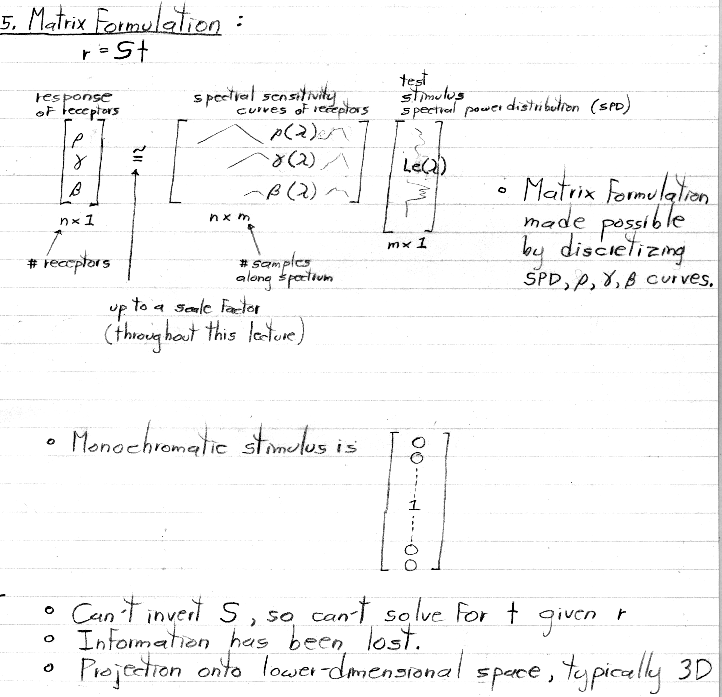 5. Matrix Formulation :
r = St
response
of receptors
spectral sensitivity
curves of receptors
test
stimulus
spectral power distribution (SPD)
ρ
γ
β
≅
ρ(λ)
γ(λ)
β(λ)
Le(λ)
n×1
n×m
m×1
# receptors
# samples
along spectrum
up to a scale factor
(throughout this lecture)
• Matrix Formulation
made possible
by discretizing
SPD, ρ, γ, β curves.
• Monochromatic stimulus is
0
0
1
0
0
• Can't invert S, so can't solve for t given r
• Information has been lost.
• Projection onto lower-dimensional space, typically 3D